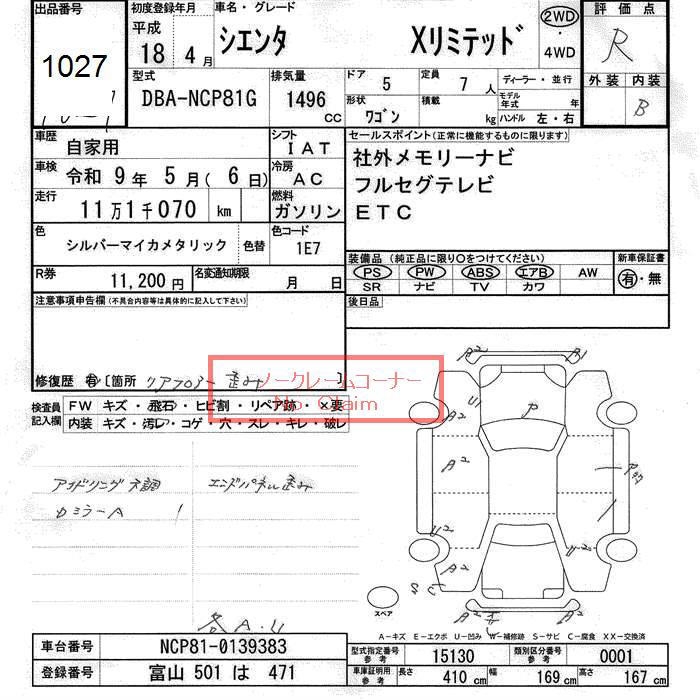 出品番号
1027
初度登録年月
平成
18年 4月
車名・グレード
シエンタ Xリミテッド
2WD
・
4WD
評価点
R
外装 内装
B
型式
DBA-NCP81G
排気量
1496
cc
ドア 5
定員 7人
ディーラー・並行
形状 ワゴン
積載 kg
モデル年式 年
ハンドル 左・右
車歴 自家用
シフト IAT
車検 令和 9年 5月( 6日)
冷房 AC
走行 11万1千070 km
燃料 ガソリン
色 シルバーマイカメタリック 色替
色コード 1E7
R券 11,200円
名変通知期限 月 日
セールスポイント(正常に機能するものに限ります)
社外メモリーナビ
フルセグテレビ
ETC
装備品(純正品に限り○をつけてください)
新車保証書
PS PW ABS エアB AW
SR ナビ TV カワ
有・無
後日品
注意事項申告欄(不具合内容等は具体的に記入して下さい)
修復歴 有〔箇所 リアフロアー歪み 〕
ノークレームコーナー
No Claim
検査員記入欄
FW キズ・飛石・ヒビ割・リペア跡・×要
内装 キズ・汚レ・コゲ・穴・スレ・キレ・破レ
アイドリング不調 エンドパネル歪み
カミラーA
各A・U
A2 A1
A2 U P
A2
U2 U2
A2
S C
A2
スペア
A-キズ E-エクボ U-凹み W-補修跡 S-サビ C-腐食 XX-交換済
車台番号 NCP81-0139383
登録番号 富山 501 は 471
型式指定番号参考 15130
類別区分番号参考 0001
車庫証明用参考 長さ 410 cm 幅 169 cm 高さ 167 cm